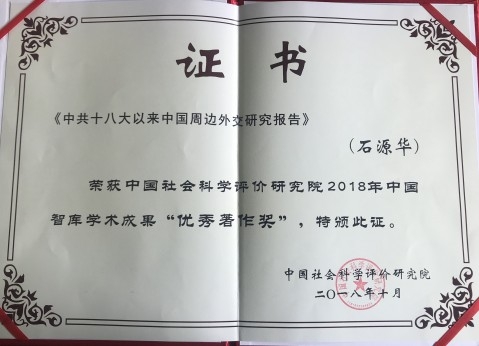 证书
《中共十八大以来中国周边外交研究报告》
(石源华)
荣获中国社会科学评价研究院2018年中国
智库学术成果“优秀著作奖”，特颁此证。
中国社会科学评价研究院
二〇一八年十月